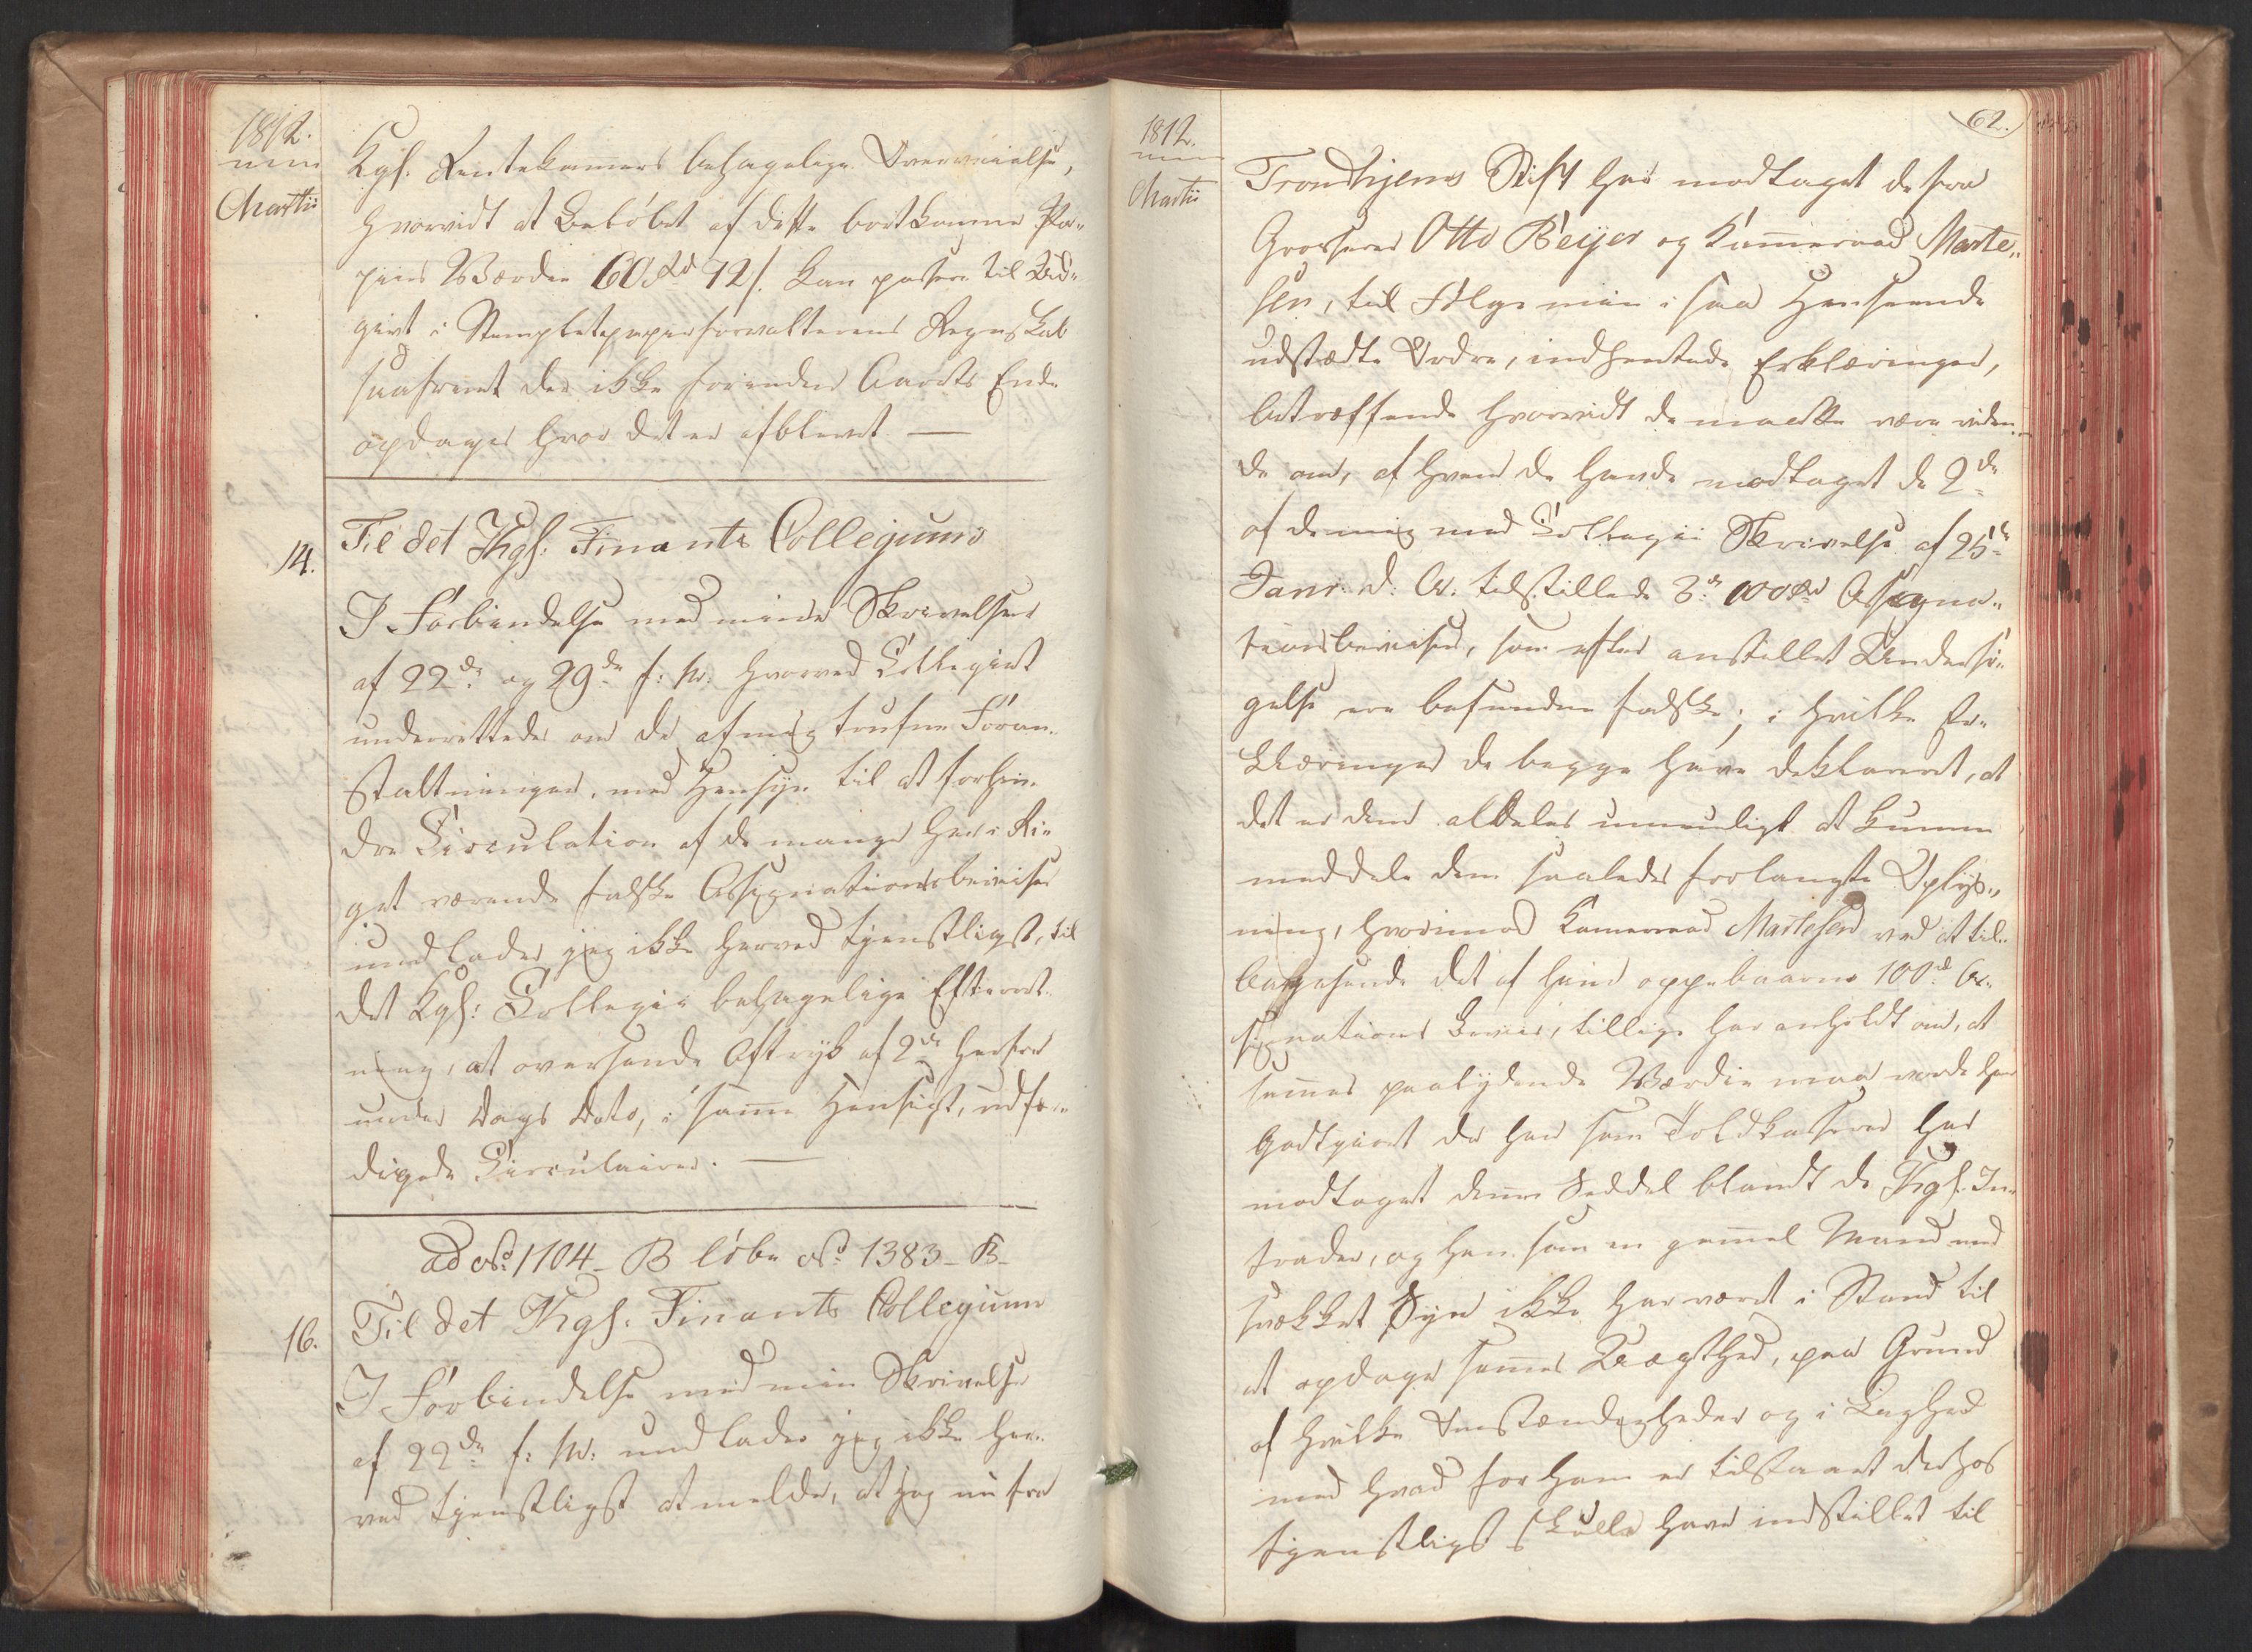 1812.
Martii
Kgl. Rentekamers behagelige Overveielse,
hvorvidt at Beløbet af dette bortkomne Pa-
piirs Værdie 60 Rd 72 s. kan passere til Ud-
givt i Stempletpapiirforvalterens Regnskab
saafremt der ikke forinden Aarets Ende
opdages hvor det er afblevet. —
14.
Til det Kgl: Finants Collegium
I Forbindelse med mine Skrivelser
af 22de og 29de f: M: hvorved Collegiet
underrettedes om de af mig trufne Foran-
staltninger, med Hensyn til at forhin-
dre Circulation af de mange her i Ri-
get værende falske Assignationsbeviser
undlader jeg ikke herved tienstligst, til
det Kgl: Collegii behagelige Efterret-
ning, at oversende Aftryk af 2de herfra
under Dags Dato, i samme Hensigt, udfær-
digede Circulairer. —
ad No 1104 - B løbe No 1383 - B -
16.
Til det Kgl. Finants Collegium
I Forbindelse med min Skrivelse
af 22de f: M: undlader jeg ikke her-
ved tienstligst at melde, at jeg nu fra
1812.
Martii
62.
Trondhjems Stift har modtaget de fra
Grosserer Otto Beijer og Kammerraad Marte-
sen, til Følge min i saa Henseende
udstædte Ordre, indhentede Erklæringer,
betræffende hvorvidt de maatte være viden-
de om, af hvem de havde modtaget de 2de
af de mig med Collegii Skrivelse af 25de
Janr. d. A. tilstillede 3de 100 Rd Assigna-
tionsbeviser, som efter anstillet Undersø-
gelse ere befundne falske; i hvilke Er-
klæringer de begge have deklareret, at
det er dem aldeles umueligt at kunne
meddele den saaledes forlangte Oplys-
ning, hvorimod Kammerraad Martesen ved at til-
bagesende det af ham oppebaarne 100 rd As-
signations Beviis, tillige har anholdt om, at
sammes paalydende Værdie maa vorde ham
godtgiort da han som Toldkasserer har
modtaget denne Seddel blandt de Kgl. In-
trader, og han som en gammel Mand med
svækket Syn ikke har været i Stand til
at opdage sammes Uægthed, paa Grund
af hvilke Omstændigheder og i Liighed
med hvad for ham er tilstaaet derhos
tienstligst skulle have indstillet til